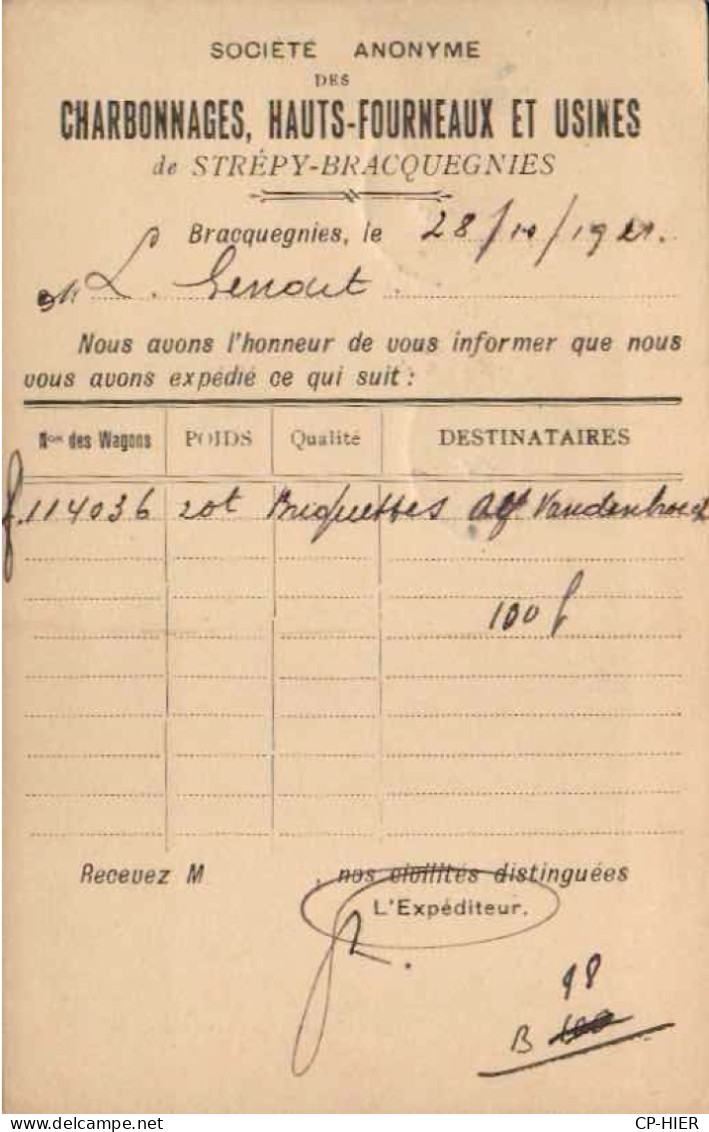 SOCIÉTÉ ANONYME
DES
CHARBONNAGES, HAUTS-FOURNEAUX ET USINES
de STRÉPY-BRACQUEGNIES
Bracquegnies, le 28/10/1921.
M L. Genout
Nous avons l'honneur de vous informer que nous
vous avons expédié ce qui suit :
Nos des Wagons POIDS Qualité DESTINATAIRES
114036 20t Briquettes Alf Vandenbroeck
100 f
Recevez M , nos civilités distinguées
L'Expéditeur.
98
B 100
CP-HIER